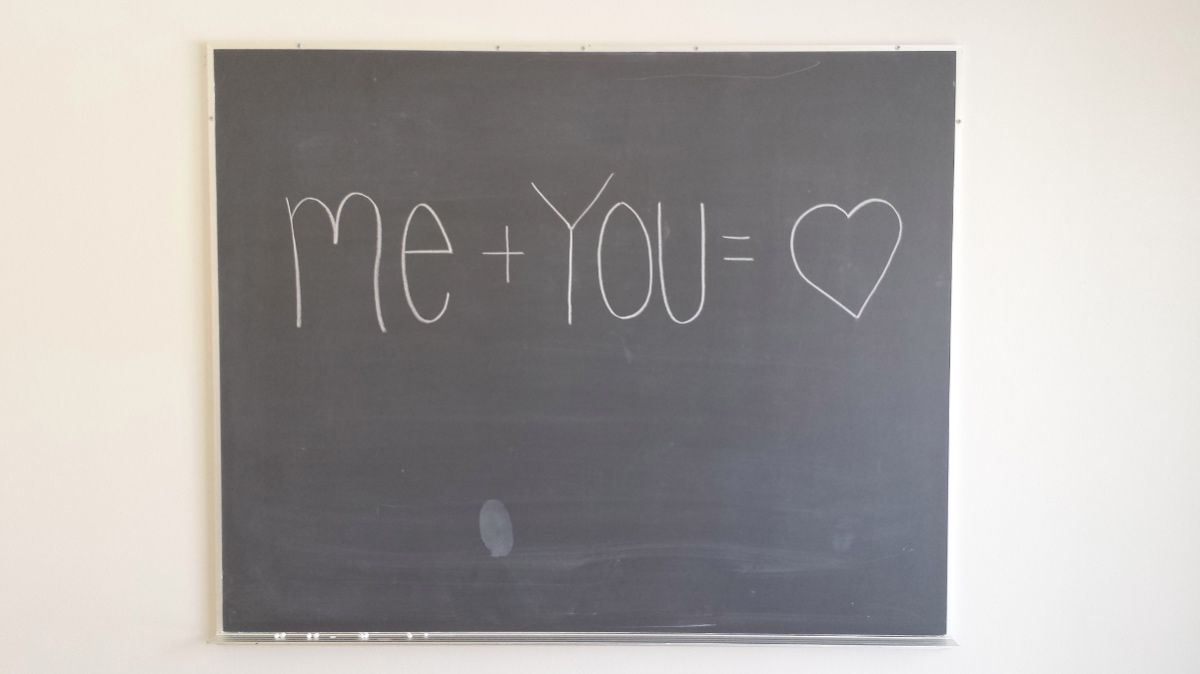 me + YOU = ♡